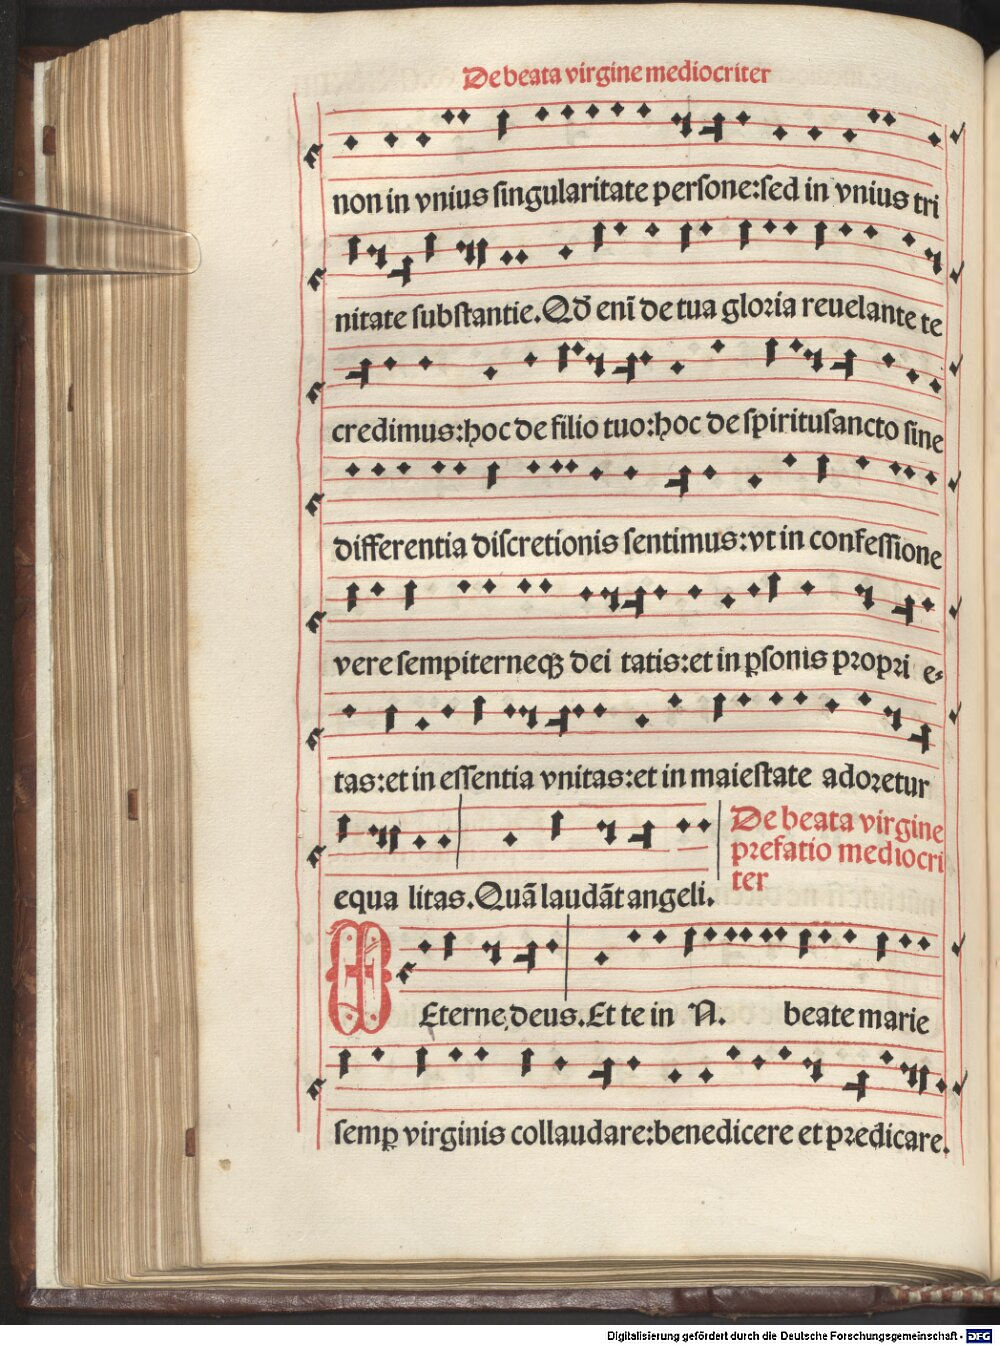 De beata virgine mediocriter
non in vnius singularitate persone:sed in vnius tri
nitate substantie.Qď enī de tua gloria reuelante te
credimus:hoc de filio tuo:hoc de spiritusancto sine
differentia discretionis sentimus:vt in confessione
vere sempiterneqꝫ dei tatis:et in ꝑsonis propri e-
tas:et in essentia vnitas:et in maiestate adoretur
De beata virgine
prefatio mediocri
ter
equa litas.Quā laudāt angeli.
Eterne deus.Et te in N. beate marie
semꝑ virginis collaudare:benedicere et predicare.
Digitalisierung gefördert durch die Deutsche Forschungsgemeinschaft - DFG